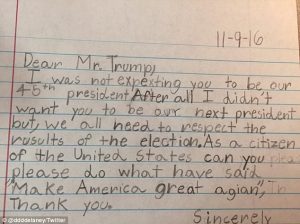 11-9-16
Dear Mr. Trump,
I was not expexting you to be our
45th president. After all I didn't
want you to be our next president
but, we all need to respect the
rusults of the election. As a citizen
of the United States can you plea
please do what have said
"Make America great agian,"
Thank you.
Sincerely
@ddddelaney/Twitter